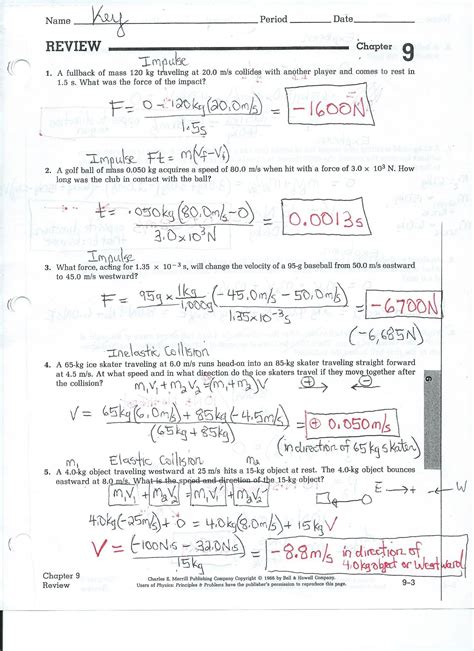 Name Key Period Date
REVIEW Chapter 9
Impulse
1. A fullback of mass 120 kg traveling at 20.0 m/s collides with another player and comes to rest in
1.5 s. What was the force of the impact?
F = 0 - 120kg(20.0m/s) / 1.5s = -1600N
Impulse Ft = m(Vf-Vi)
2. A golf ball of mass 0.050 kg acquires a speed of 80.0 m/s when hit with a force of 3.0 × 10³ N. How
long was the club in contact with the ball?
t = .050kg(80.0m/s-0) / 3.0×10³N = 0.0013s
Impulse
3. What force, acting for 1.35 × 10⁻³ s, will change the velocity of a 95-g baseball from 50.0 m/s eastward
to 45.0 m/s westward?
F = 95g × 1kg/1,000g (-45.0m/s - 50.0m/s) / 1.35×10⁻³s = -6700N
(-6,685N)
Inelastic Collision
4. A 65-kg ice skater traveling at 6.0 m/s runs head-on into an 85-kg skater traveling straight forward
at 4.5 m/s. At what speed and in what direction do the ice skaters travel if they move together after
the collision? m₁V₁ + m₂V₂ = (m₁+m₂)V ⊕→ ←⊖
V = 65kg(6.0m/s) + 85kg(-4.5m/s) / (65kg + 85kg) = ⊕ 0.050m/s
(in direction of 65 kg skater)
m₁ Elastic Collision m₂
5. A 4.0-kg object traveling westward at 25 m/s hits a 15-kg object at rest. The 4.0-kg object bounces
eastward at 8.0 m/s. What is the speed and direction of the 15-kg object?
m₁V₁ + m₂V₂ = m₁V₁' + m₂V₂' E → + ← W
4.0kg(-25m/s) + 0 = 4.0kg(8.0m/s) + 15kg V
V = (-100N·s - 32.0N·s) / 15kg = -8.8m/s in direction of
4.0kg object or Westward
6
Chapter 9
Review
Charles E. Merrill Publishing Company Copyright © 1986 by Bell & Howell Company.
Users of Physics: Principles & Problems have the publisher's permission to reproduce this page.
9-3